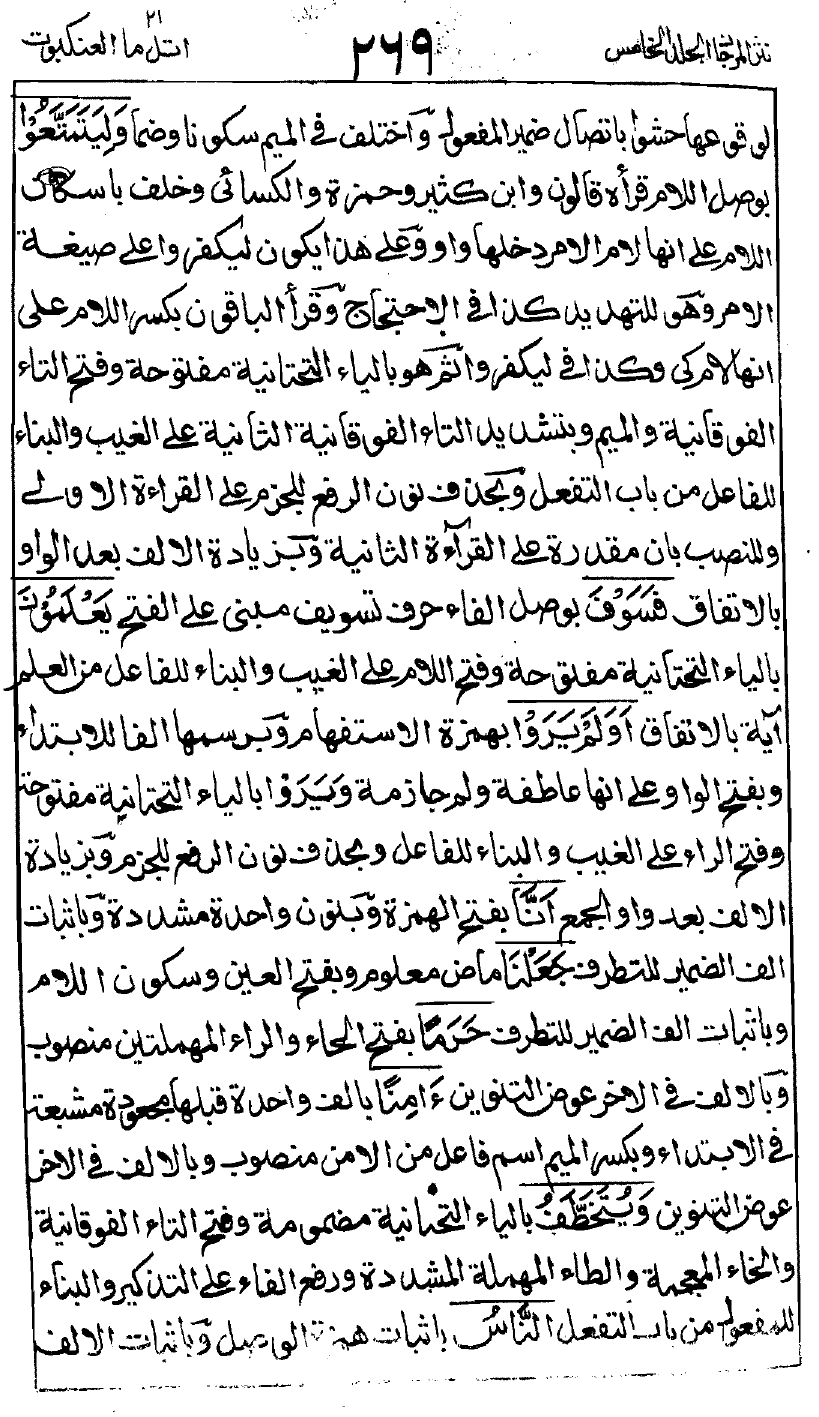 نثر المرجان المجلد الخامس ٢٦٩ اتل ما العنكبوت
٢١
لوقوعها حشوا باتصال ضمير المفعول واختلف في الميم سكونا وضما وَلِيَتَمَتَّعُوْا
بوصل اللام قرأه قالون وابن كثير وحمزة والكسائى وخلف باسكان
اللام على انها لام الامر دخلها واو وعلى هذا يكون ليكفروا على صيغة
الامر وهو للتهديد كذا في الاحتجاج وقرأ الباقون بكسر اللام على
انها لام كى وكذا في ليكفروا ثم هو بالياء التحتانية مفتوحة وفتح التاء
الفوقانية والميم وبتشديد التاء الفوقانية الثانية على الغيب والبناء
للفاعل من باب التفعل وبحذف نون الرفع للجزم على القراءة الاولى
وللنصب بان مقدرة على القرآءة الثانية وبزيادة الالف بعد الواو
بالاتفاق فَسَوْفَ بوصل الفاء حرف تسويف مبنى على الفتح يَعْلَمُوْنَ
بالياء التحتانية مفتوحة وفتح اللام على الغيب والبناء للفاعل من العلم
آية بالاتفاق اَوَلَمْ يَرَوْا بهمزة الاستفهام وبرسمها الفا للابتداء
وبفتح الواو على انها عاطفة ولم جازمة ويَرَوْا بالياء التحتانية مفتوحة
وفتح الراء على الغيب والبناء للفاعل وبحذف نون الرفع للجزم وبزيادة
الالف بعد واو الجمع اَنَّا بفتح الهمزة وبنون واحدة مشددة وباثبات
الف الضمير للتطرف جَعَلْنَا ماض معلوم وبفتح العين وسكون اللام
وباثبات الف الضمير للتطرف حَرَمًا بفتح الحاء والراء المهملتين منصوب
وبالالف في الاخر عوض التنوين ءَامِنًا بالف واحدة قبلها مجعودة مشبعة
في الابتداء وبكسر الميم اسم فاعل من الامن منصوب وبالالف في الاخر
عوض التنوين وَيُتَخَطَّفُ بالياء التحتانية مضمومة وفتح التاء الفوقانية
والخاء المعجمة والطاء المهملة المشددة ورفع الفاء على التذكير والبناء
للمفعول من باب التفعل النَّاسُ باثبات همزة الوصل وباثبات الالف